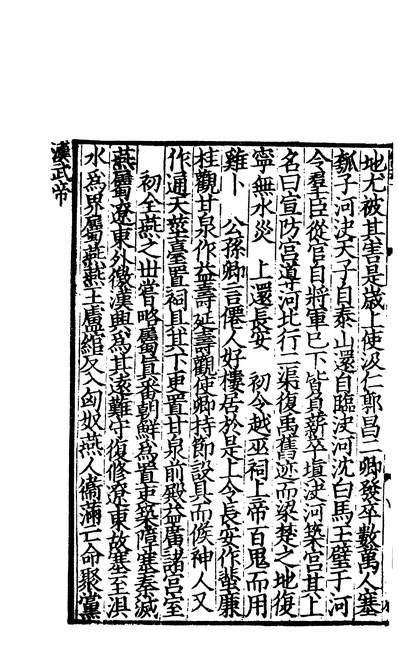 地尤被其害是歲上使汲仁郭昌二卿發卒數萬人塞
瓠子河決天子自泰山還自臨決河沈白馬玉璧于河
令羣臣從官自將軍已下皆負薪卒塡決河築宮其上
名曰宣防宮導河北行二渠復禹舊迹而梁楚之地復
寧無水災　上還長安　初令越巫祠上帝百鬼而用
雞卜　公孫卿言僊人好樓居於是上令長安作蜚廉
桂觀甘泉作益壽延壽觀使卿持節設具而候神人又
作通天莖臺置祠具其下更置甘泉前殿益廣諸宮室
初全燕之世嘗略屬真番朝鮮爲置吏築障塞秦滅
燕屬遼東外徼漢興爲其遠難守復修遼東故塞至浿
水爲界屬燕燕王盧綰反入匈奴燕人衞滿亡命聚黨
漢武帝